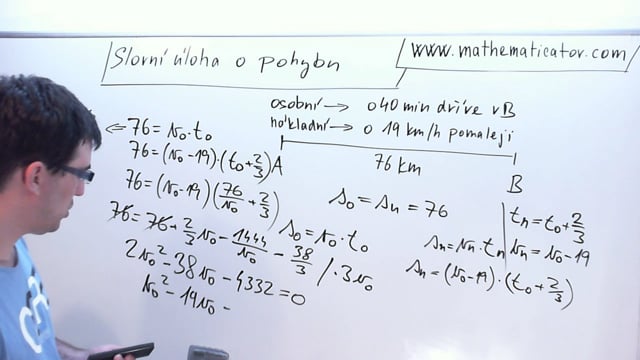 Slovní úloha o pohybu
www.mathematicator.com
osobní → o 40 min dříve v B
nákladní → o 19 km/h pomaleji
A
76 km
B
⇐ 76 = v₀ · t₀
76 = (v₀ - 19) · (t₀ + 2/3)
76 = (v₀ - 19) (76/v₀ + 2/3)
76 = 76 + 2/3 v₀ - 1444/v₀ - 38/3 / · 3v₀
2v₀² - 38v₀ - 4332 = 0
v₀² - 19v₀ -
s₀ = sₙ = 76
s₀ = v₀ · t₀
sₙ = vₙ · tₙ
sₙ = (v₀ - 19) · (t₀ + 2/3)
tₙ = t₀ + 2/3
vₙ = v₀ - 19